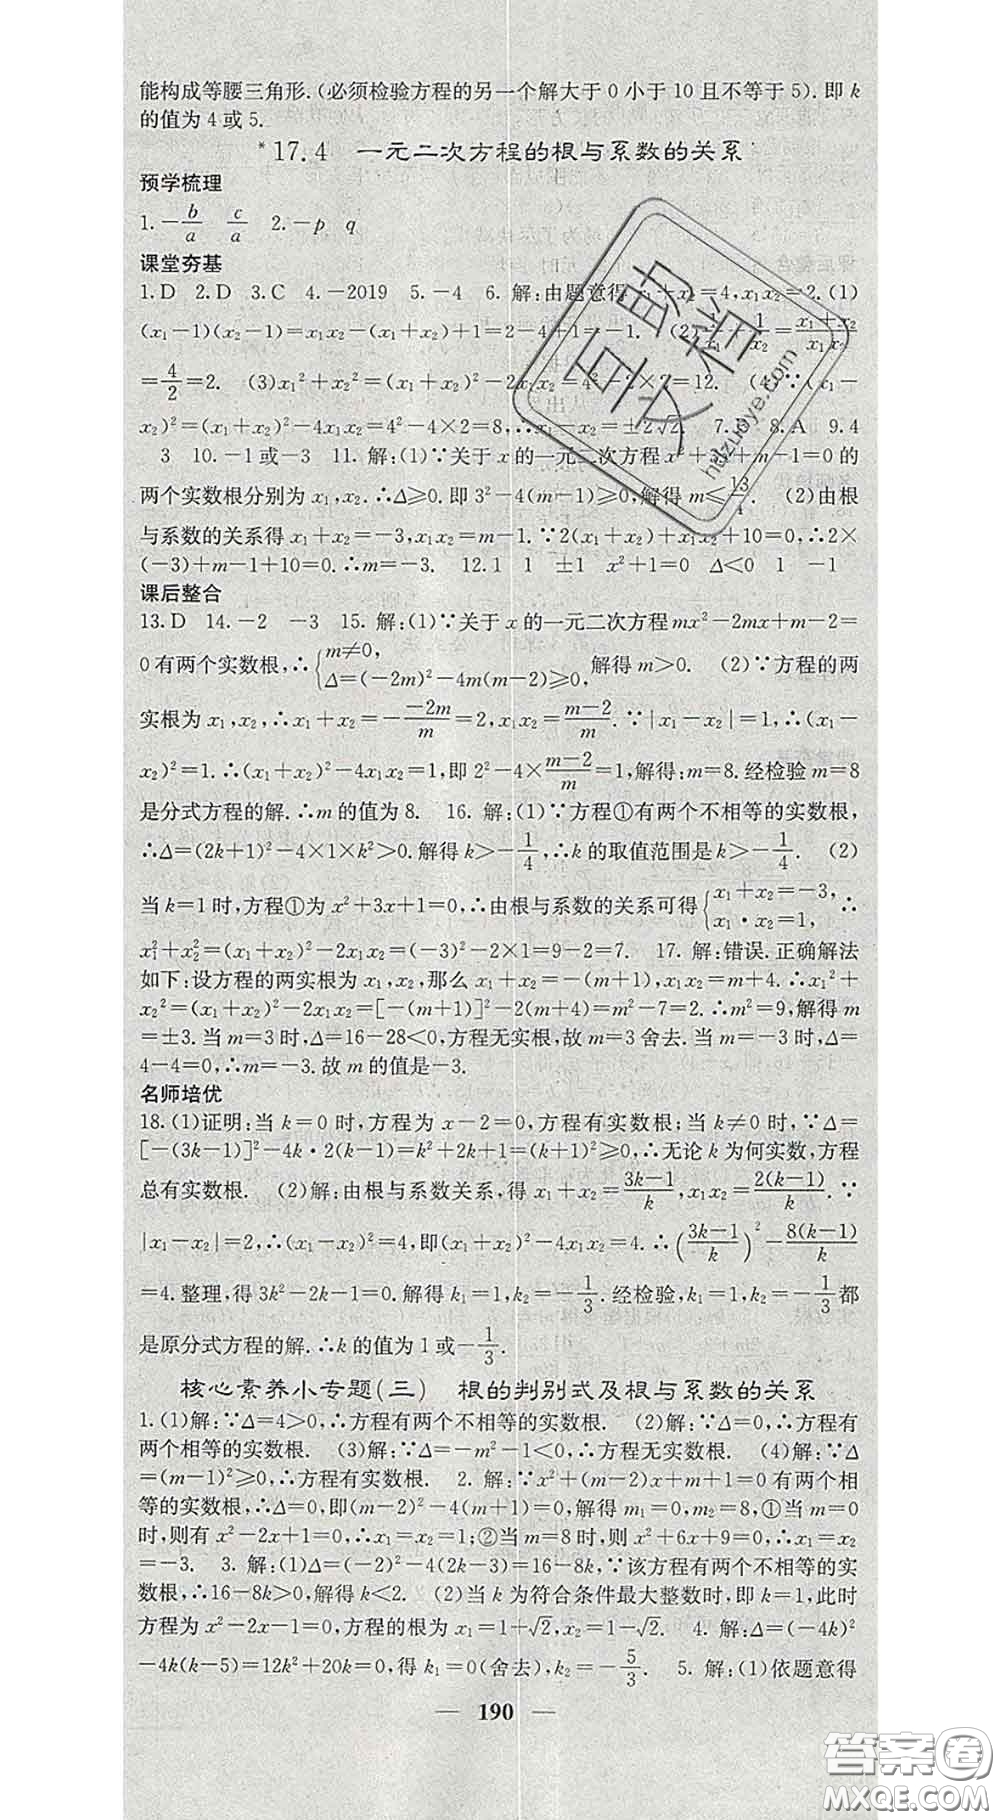 能构成等腰三角形.(必须检验方程的另一个解大于0小于10且不等于5).即k
的值为4或5.
*17.4 一元二次方程的根与系数的关系
预学梳理
1.-b/a c/a 2.-p q
课堂夯基
1.D 2.D 3.C 4.-2019 5.-4 6.解:由题意得x₁+x₂=4,x₁x₂=2.(1)
(x₁-1)(x₂-1)=x₁x₂-(x₁+x₂)+1=2-4+1=-1. (2)1/x₁+1/x₂=(x₁+x₂)/(x₁x₂)
=4/2=2. (3)x₁²+x₂²=(x₁+x₂)²-2x₁x₂=4²-2×2=12. (4)∵(x₁-
x₂)²=(x₁+x₂)²-4x₁x₂=4²-4×2=8,∴x₁-x₂=±2√2. 8.A 9.4
3 10.-1或-3 11.解:(1)∵关于x的一元二次方程x²+3x+m-1=0的
两个实数根分别为x₁,x₂.∴Δ≥0.即3²-4(m-1)≥0,解得m≤13/4. (2)由根
与系数的关系得x₁+x₂=-3,x₁x₂=m-1.∵2(x₁+x₂)+x₁x₂+10=0,∴2×
(-3)+m-1+10=0.∴m=-3. 12.1 1 ±1 x²+1=0 Δ<0 1 -1
课后整合
13.D 14.-2 -3 15.解:(1)∵关于x的一元二次方程mx²-2mx+m-2=
0有两个实数根,∴{m≠0, Δ=(-2m)²-4m(m-2)≥0, 解得m>0. (2)∵方程的两
实根为x₁,x₂,∴x₁+x₂=-(-2m)/m=2,x₁x₂=(m-2)/m.∵|x₁-x₂|=1,∴(x₁-
x₂)²=1.∴(x₁+x₂)²-4x₁x₂=1,即2²-4×(m-2)/m=1,解得:m=8.经检验m=8
是分式方程的解.∴m的值为8. 16.解:(1)∵方程①有两个不相等的实数根,
∴Δ=(2k+1)²-4×1×k²>0.解得k>-1/4,∴k的取值范围是k>-1/4. (2)
当k=1时,方程①为x²+3x+1=0,∴由根与系数的关系可得{x₁+x₂=-3, x₁·x₂=1, ∴
x₁²+x₂²=(x₁+x₂)²-2x₁x₂=(-3)²-2×1=9-2=7. 17.解:错误.正确解法
如下:设方程的两实根为x₁,x₂,那么x₁+x₂=-(m+1),x₁x₂=m+4.∴x₁²+
x₂²=(x₁+x₂)²-2x₁x₂=[-(m+1)]²-2(m+4)=m²-7=2.∴m²=9,解得m
=±3.当m=3时,Δ=16-28<0,方程无实根,故m=3舍去.当m=-3时,Δ=
4-4=0,∴m=-3.故m的值是-3.
名师培优
18.(1)证明:当k=0时,方程为x-2=0,方程有实数根;当k≠0时,∵Δ=
[-(3k-1)]²-4k·2(k-1)=k²+2k+1=(k+1)²≥0,∴无论k为何实数,方程
总有实数根. (2)解:由根与系数关系,得x₁+x₂=(3k-1)/k,x₁x₂=2(k-1)/k.∵
|x₁-x₂|=2,∴(x₁-x₂)²=4,即(x₁+x₂)²-4x₁x₂=4.∴((3k-1)/k)²-8(k-1)/k
=4.整理,得3k²-2k-1=0.解得k₁=1,k₂=-1/3.经检验,k₁=1,k₂=-1/3都
是原分式方程的解.∴k的值为1或-1/3.
核心素养小专题(三) 根的判别式及根与系数的关系
1.(1)解:∵Δ=4>0,∴方程有两个不相等的实数根. (2)解:∵Δ=0,∴方程有
两个相等的实数根. (3)解:∵Δ=-m²-1<0,∴方程无实数根. (4)解:∵Δ
=(m-1)²≥0,∴方程有实数根. 2.解:∵x²+(m-2)x+m+1=0有两个相
等的实数根,∴Δ=0,即(m-2)²-4(m+1)=0,解得m₁=0,m₂=8,①当m=0
时,则有x²-2x+1=0,∴x₁=x₂=1;②当m=8时,则x²+6x+9=0,∴x₁=x₂
=-3. 3.解:(1)Δ=(-2)²-4(2k-3)=16-8k,∵该方程有两个不相等的实
数根,∴16-8k>0,解得k<2. (2)当k为符合条件最大整数时,即k=1,此时
方程为x²-2x-1=0,方程的根为x₁=1+√2,x₂=1-√2. 4.解:Δ=(-4k)²
-4k(k-5)=12k²+20k=0,得k₁=0(舍去),k₂=-5/3. 5.解:(1)依题意得
— 190 —
互助文档
huzuoye.com
答案圈
MXQE.COM